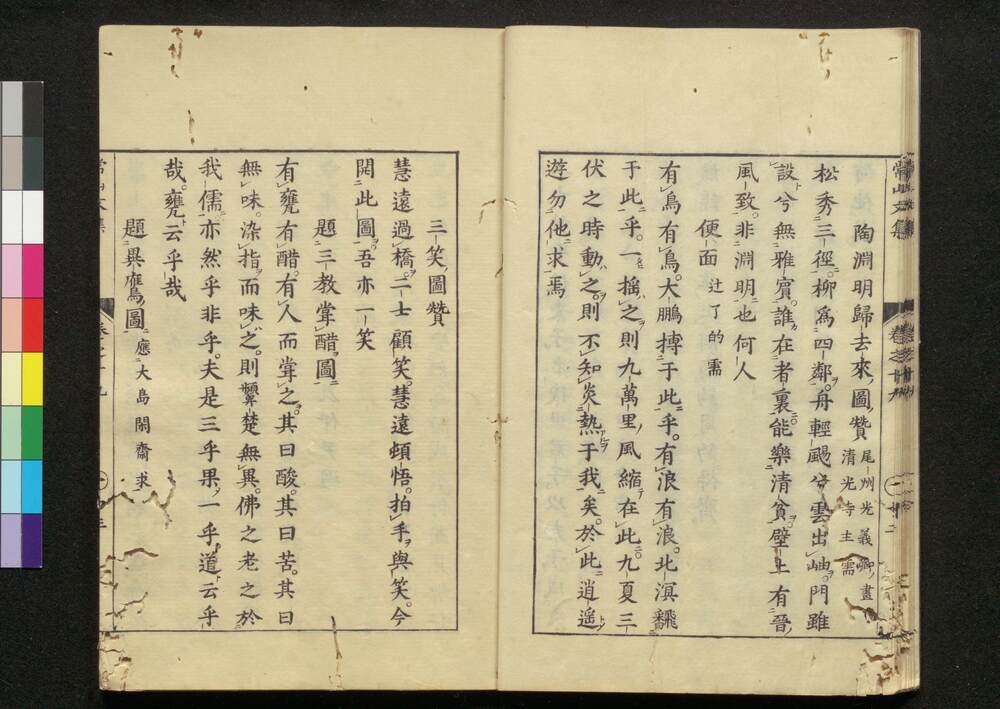 陶淵明歸去來圖贊 尾州光義卿畫
清光寺主需
松秀三徑柳爲四鄰舟輕颺兮雲出岫門雖
設兮無雅賓誰在者裏能樂清貧壁上有晉
風致非淵明也何人
便面 辻了的需
有鳥有鳥大鵬摶于此乎有浪有浪北溟飜
于此乎一搧之則九萬里風縮在此九夏三
伏之時動之則不知炎熱于我矣於此逍遥
遊勿他求焉
三笑圖贊
慧遠過橋二士顧笑慧遠頓悟拍手與笑今
開此圖吾亦一笑
題三教甞醋圖
有甕有醋有人而甞之其曰酸其曰苦其曰
無味染指而味之則顰楚無異佛之老之於
我儒亦然乎非乎夫是三乎果一乎道云乎
哉甕云乎哉
題異鷹圖 應大島閑齋求